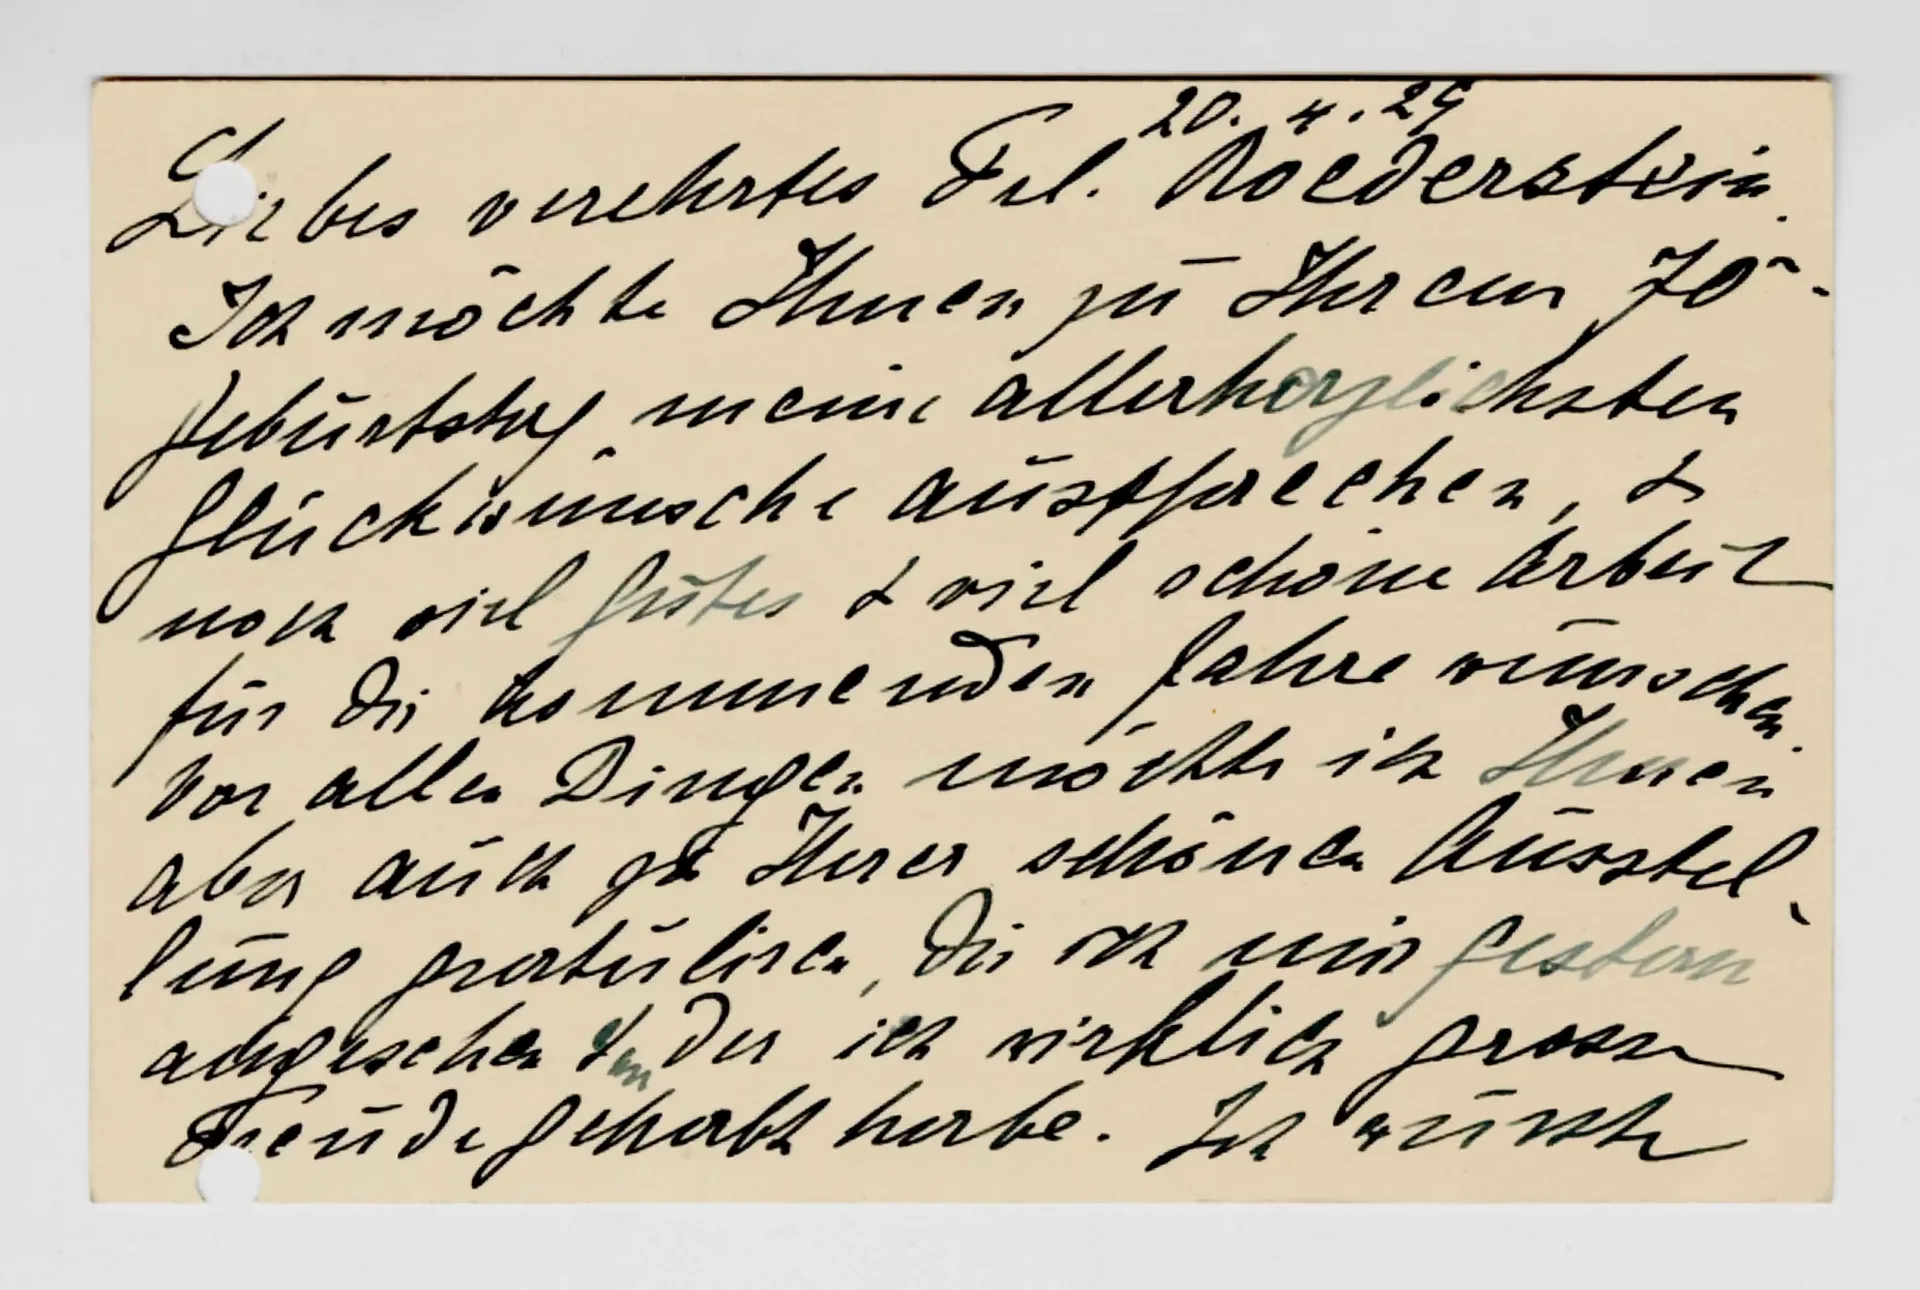 20. 4. 29
Liebes verehrtes Frl. Roederstein.
Ich möchte Ihnen zu Ihrem 70-
Geburtstag meine allerherzlichsten
Glückwünsche aussprechen, &
noch viel Gutes & viel schöne Arbeit
für die kommenden Jahre wünschen.
Vor allen Dingen möchte ich Ihnen
aber auch zu Ihrer schönen Ausstel-
lung gratulieren, die ich mir gestern
angesehen & an der ich wirklich grosse
Freude gehabt habe. Ich wusste